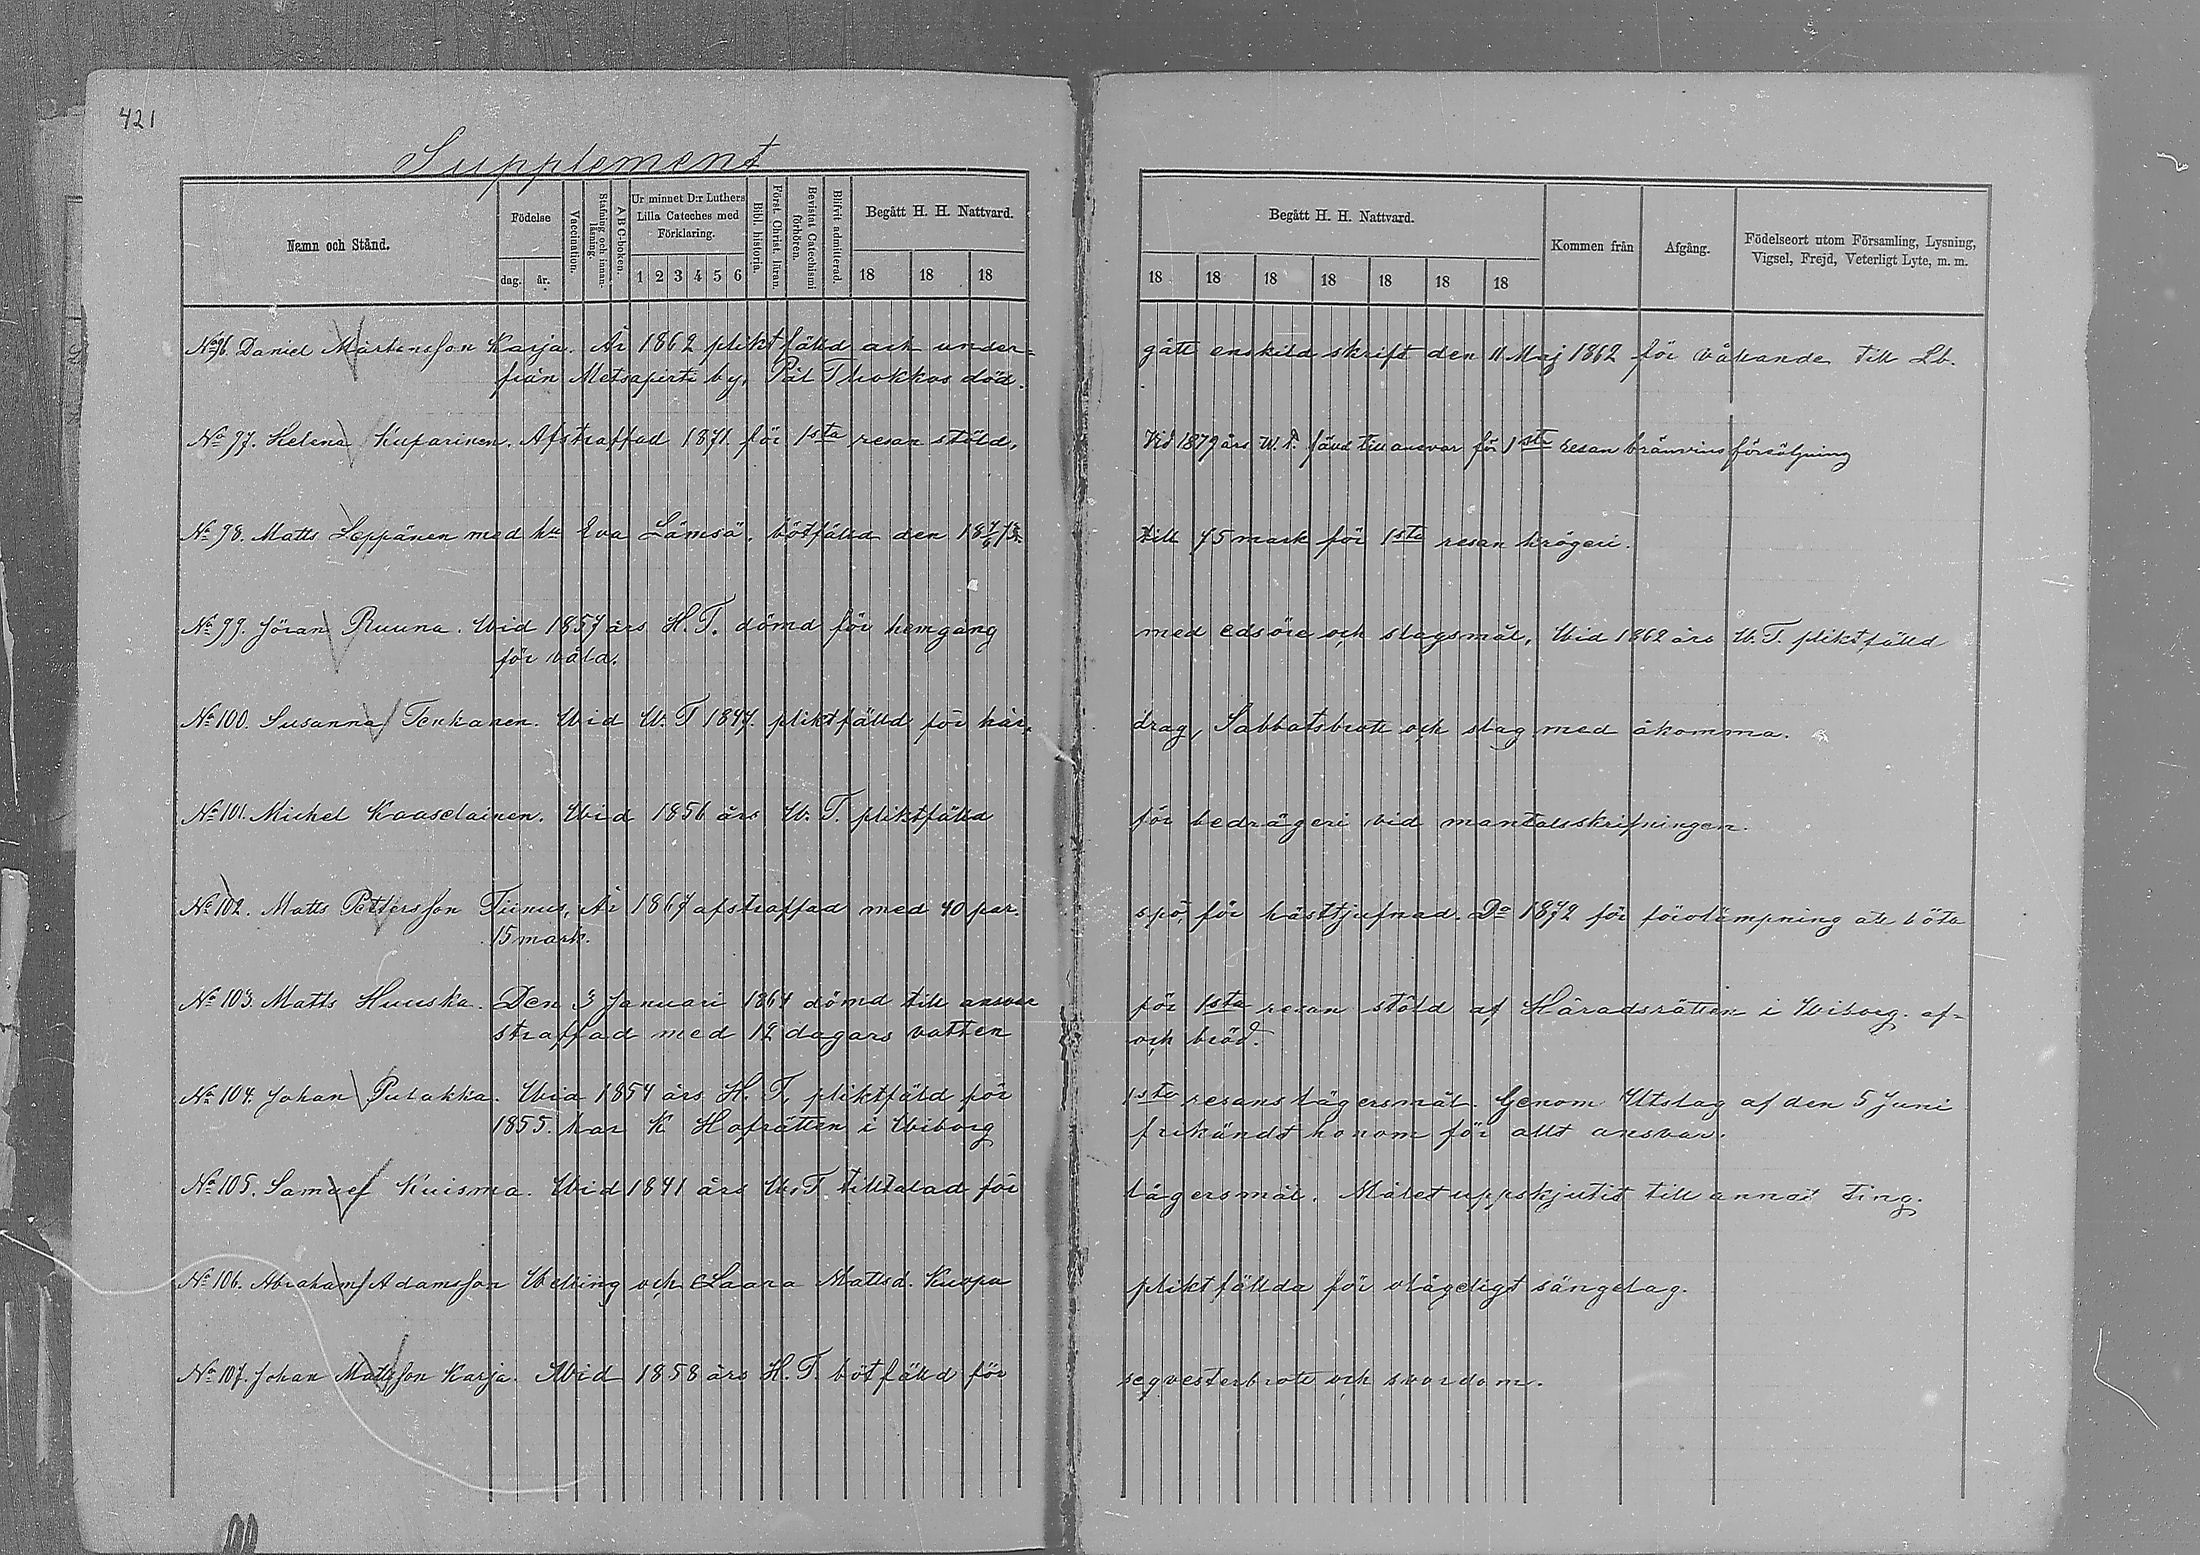 421
Supplement
Namn och Stånd.
Födelse
dag. år.
Vaccination.
Stafning och innanläsning.
ABC-boken.
Ur minnet D:r Luthers Lilla Cateches med Förklaring.
1 2 3 4 5 6
Bibl. historia.
Först. Christ. läran.
Bevistat Catechismi förhören.
Blifvit admitterad.
Begått H. H. Nattvard.
18 18 18
Begått H. H. Nattvard.
18 18 18 18 18 18 18
Kommen från
Afgång.
Födelseort utom Församling, Lysning, Vigsel, Frejd, Veterligt Lyte, m. m.
No 96. Daniel Mårtensson Karja. År 1862 pliktfälld och under= gått enskild skrift den 11 Maj 1862 för vållande till Lb.
från Metsäpirti by, Pål Thokkas död.
No 97. Helena Kuparinen. Afstraffad 1871 för 1sta resan stöld, Vid 1879 års W. T. fälld till ansvar för 1sta resan bränvins försäljning
No 98. Matts Leppänen med hu Eva Lämsä, bötfälld den till 75 mark för 1sta resan krögeri.
No 99. Jöran Ruuna. Wid 1857 års H. T. dömd för hemgång med edsöre och slagsmål, Wid 1862 års W. T. pliktfälld
för våld.
No 100. Susanna Tenkanen. Wid W. T 1847. pliktfälld för hår= drag, Sabbatsbrott och slag med åkomma.
No 101. Michel Kaaselainen. Wid 1856 års W. T. pliktfälld för bedrägeri vid mantalsskrifningen.
No 102. Matts Pettersson Tiinus, År 1867 afstraffad med 40 par. spö, för hästtjufnad. Do 1872 för förolämpning att böta
15 mark.
No 103. Matts Huuska. Den 3 Januari 1864 dömd till ansvar för 1sta resan stöld af Häradsrätten i Wiborg. af=
straffad med 12 dagars vatten och bröd.
No 104. Johan Pulakka. Wid 1854 års H. T. pliktfäld för 1sta resans lägersmål. Genom Utslag af den 5 Juni
1855. har K Hofrätten i Wiborg frikändt honom för allt ansvar.
No 105. Samuel Kuisma. Wid 1841 års W. T tilltalad för lägersmål. Målet uppskjutit till annat Ting.
No 106. Abraham Adamsson Welling och Laara Mattsd. Kuopa pliktfällda för olägeligt sängelag.
No 107. Johan Mattsson Karja. Wid 1858 års H. T. bötfälld för seqvesterbrott och svordom.